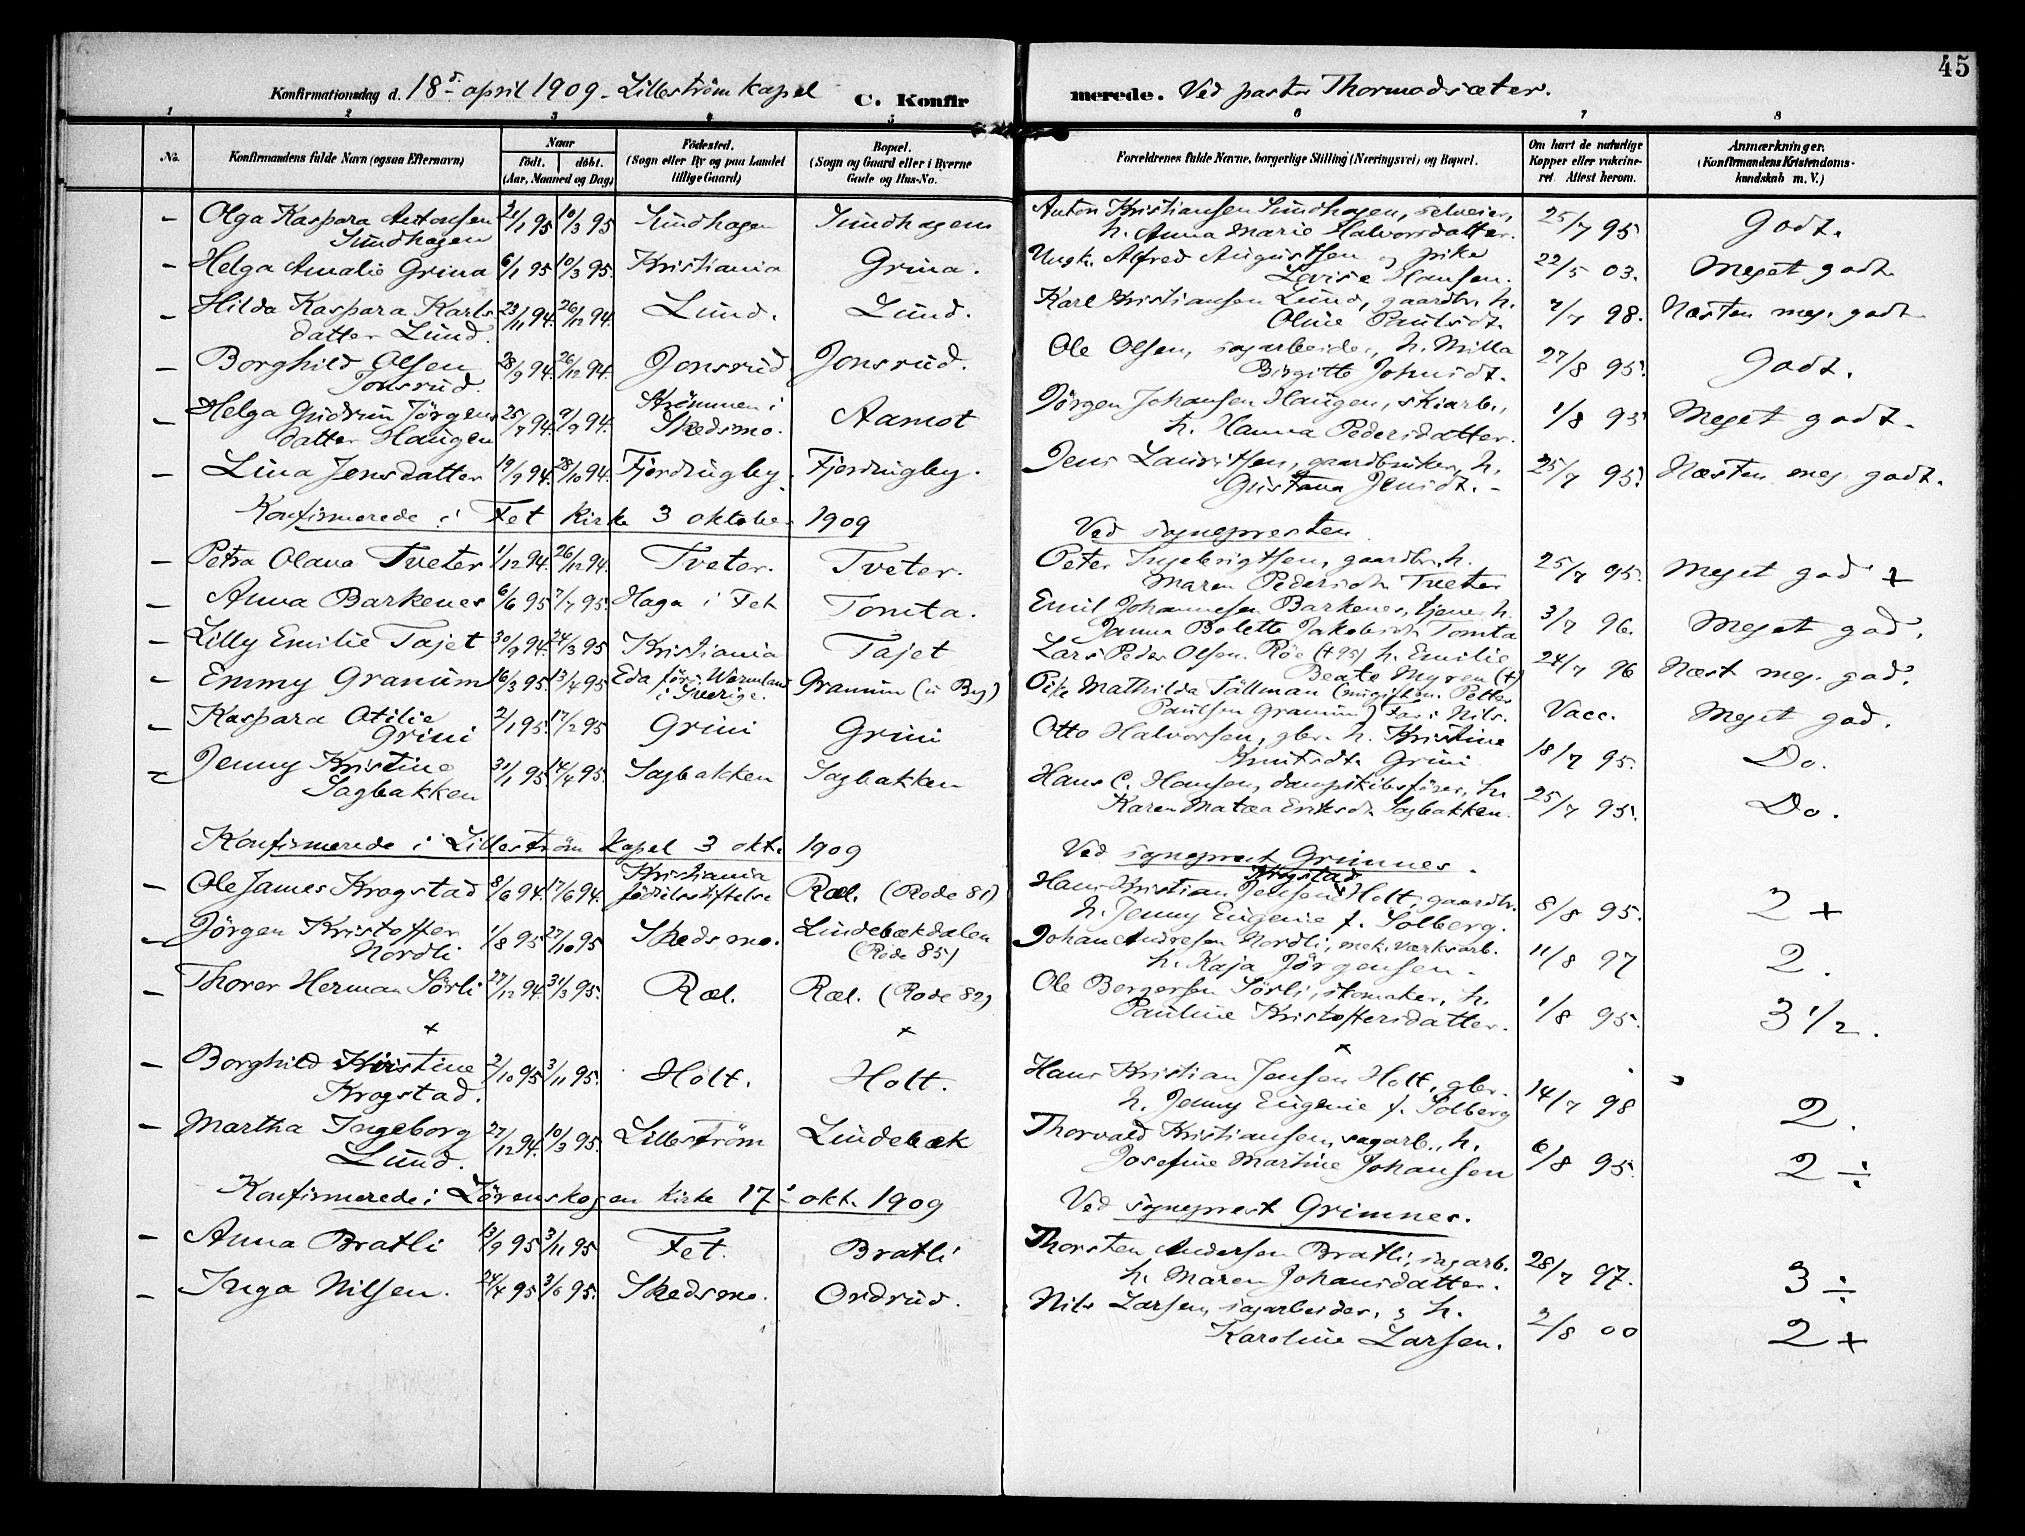 45
Konfirmationsdag d. 18d april 1909 - Lilleström kapel C. Konfirmerede. Ved pastor Thormodsæter.
1 2 3 4 5 6 7 8
No. Konfirmandens fulde Navn (ogsaa Efternavn) Naar födt. döbt. (Aar, Maaned og Dag) Födested. (Sogn eller By og paa Landet tillige Gaard) Bopæl. (Sogn og Gaard eller i Byerne Gade og Hus-No. Forældrenes fulde Navne, borgerlige Stilling (Næringsvei) og Bopæl. Om havt de naturlige Kopper eller vakcineret. Attest herom. Anmærkninger. (Konfirmandens Kristendomskundskab m. V.)
– Olga Kaspara Antonsen Sundhagen 21/1 95 10/3 95 Sundhagen Sundhagen Anton Kristiansen Sundhagen, selveier, h. Anna Marie Halvorsdatter. 25/7 95 Godt.
– Helga Amalie Grina 6/1 95 10/3 95. Kristiania Grina. Ungk. Alfred Augustsen og pike Lovise Hansen. 22/5 03. Meget godt.
– Hilda Kaspara Karlsdatter Lund. 23/11 94. 26/12 94. Lund. Lund. Karl Kristiansen Lund, gaardbr. h. Oline Paulsdt. 7/7 98. Næsten meg. godt
– Borghild Olsen Jonsrud. 28/9 94. 26/12 94. Jonsrud Jonsrud. Ole Olsen, sagarbeider, h. Milla Birgitte Johnsdt. 27/8 95. Godt.
– Helga Gudrun Jörgensdatter Haugen 25/7 94. 9/9 94. Strömmen i Skedsmo. Aamot Jörgen Johansen Haugen, skiarb., h. Hanna Pedersdatter. 1/8 95 Meget godt.
– Lina Jensdatter 19/9 94. 28/10 94. Fjerdingby. Fjerdingby. Jens Lauritsen, gaardbruker, h. Gustava Jensdt. – 25/7 95. Næsten meg. godt.
Konfirmerede i Fet kirke 3 oktober 1909 Ved sognepresten
– Petra Olava Tveter 1/12 94. 26/12 94. Tveter. Tveter. Peter Ingebrigtsen, gaardbr. h. Maren Pedersdt. Tveter 25/7 95. Meget god +
– Anna Barkenes 6/6 95 7/7 95. Haga i Fet Tomta. Emil Johannesen Barkenes, tjener h. Janna Bolette Jakobsdt. Tomta 3/7 96. Meget god.
– Lilly Emilie Tajet 30/9 94. 24/3 95 Kristiania Tajet Lars Peder Olsen Röe (†95) h. Emilie Beate Myren (†) 24/7 96 Næst meg. god.
– Emmy Granum 16/3 95. 13/4 95 Eda förs. Wermland i Sverige. Granum (u By) Pike Mathilda Tällman (nugift m. Petter Paulsen Granum) Far: Nils. Vacc. Meget god.
– Kaspara Otilie Grini 2/1 95. 17/2 95 Grini Grini Otto Halvorsen, gbr. h. Kristine Knutsdt. Grini 18/7 95. Do.
– Jenny Kristine Sagbakken 31/1 95. 14/4 95. Sagbakken Sagbakken Hans C. Hansen, dampskibsförer, h. Karen Matea Eriksdt. Sagbakken. 25/7 95. Do.
Konfirmerede i Lilleström kapel 3 okt. 1909 Ved sogneprest Grimnes.
– Ole James Krogstad 8/6 94. 17/6 94. Kristiania födselsstiftelse Ræl. (Rode 81) Hans Kristian Jensen Krogstad Holt, gaardbr. h. Jenny Eugenie f. Solberg. 8/8 95. 2 +
– Jörgen Kristoffer Nordli 1/8 95 27/10 95 Skedsmo. Lindebækdalen (Rode 85) Johan Andresen Nordli, mek. værksarb. h. Kaja Jörgensen. 11/8 97 2.
– Thorer Herman Sörli 27/12 94. 31/3 95. Ræl. Ræl. (Rode 82) Ole Borgersen Sörli, skomaker, h. Pauline Kristoffersdatter. 1/8 95. 3 1/2.
– Borghild Kristine Krogstad. 2/10 95 3/11 95. Holt. Holt. Hans Kristian Jensen Holt, gbr. h. Jenny Eugenie f. Solberg 14/7 98 2.
– Martha Ingeborg Lund. 27/12 94. 10/3 95. Lilleström Lindebæk Thorvald Kristiansen, sagarb., h. Josefine Martine Johansen 6/8 95. 2 ÷
Konfirmerede i Lörenskogen kirke 17d okt. 1909 Ved sogneprest Grimnes.
– Anna Bratli 13/9 95 3/11 95 Fet. Bratli Thorsten Andersen Bratli, sagarb. h. Maren Johansdatter. 28/7 97. 3 ÷
– Inga Nilsen. 24/4 95 3/6 95. Skedsmo. Ordrud. Nils Larsen, sagarbeider, h. Karoline Larsen. 2/8 00 2 +